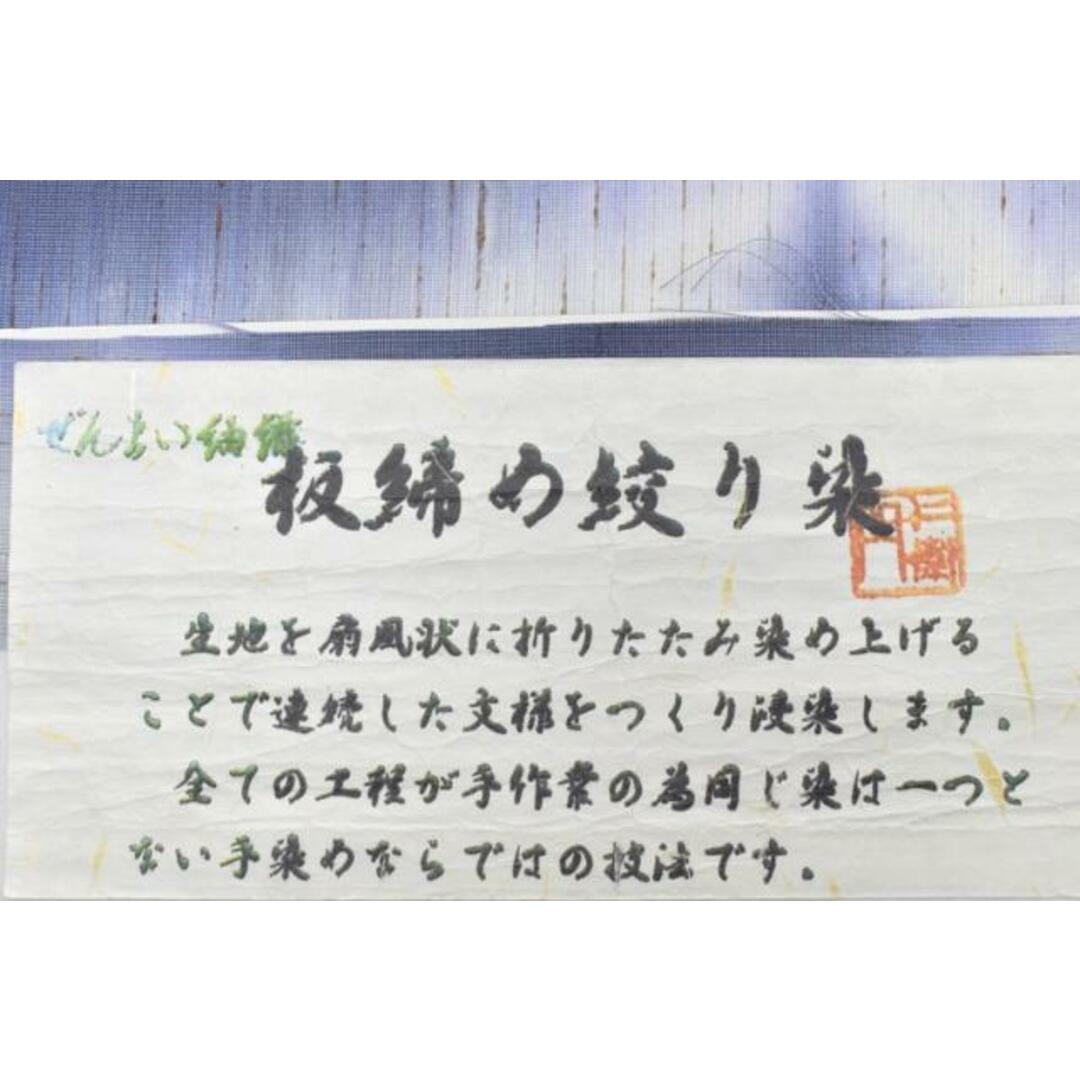 ぜんまい紬織
板締め絞り染
生地を扇風状に折りたたみ染め上げる
ことで連続した文様をつくり浸染します。
全ての工程が手作業の為同じ染は一つと
ない手染めならではの技法です。